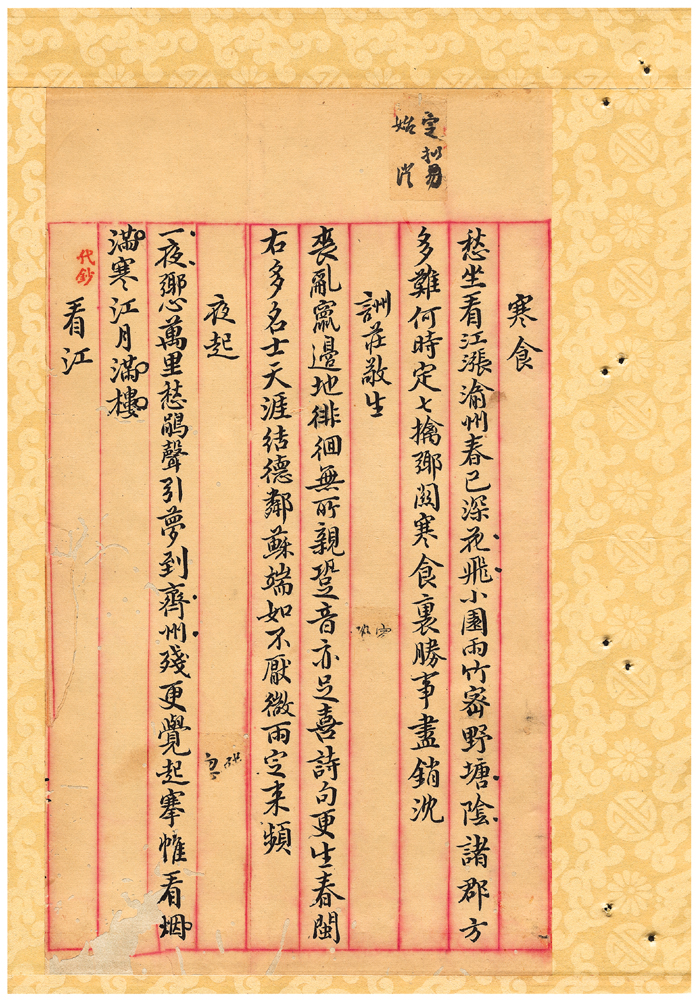 寒食
愁坐看江漲渝州春已深花飛小園雨竹密野塘陰諸郡方
多難何時定七擒鄉關寒食裏勝事盡銷沈
詶莊敬生
喪亂竄邊地徘徊無所親跫音亦足喜詩句更生春閩
右多名士天涯結德鄰蘇端如不厭微雨定来頻
夜起
一夜鄉心萬里愁鵑聲引夢到齊州殘更覺起搴帷看烟
滿寒江月滿樓
代鈔
看江